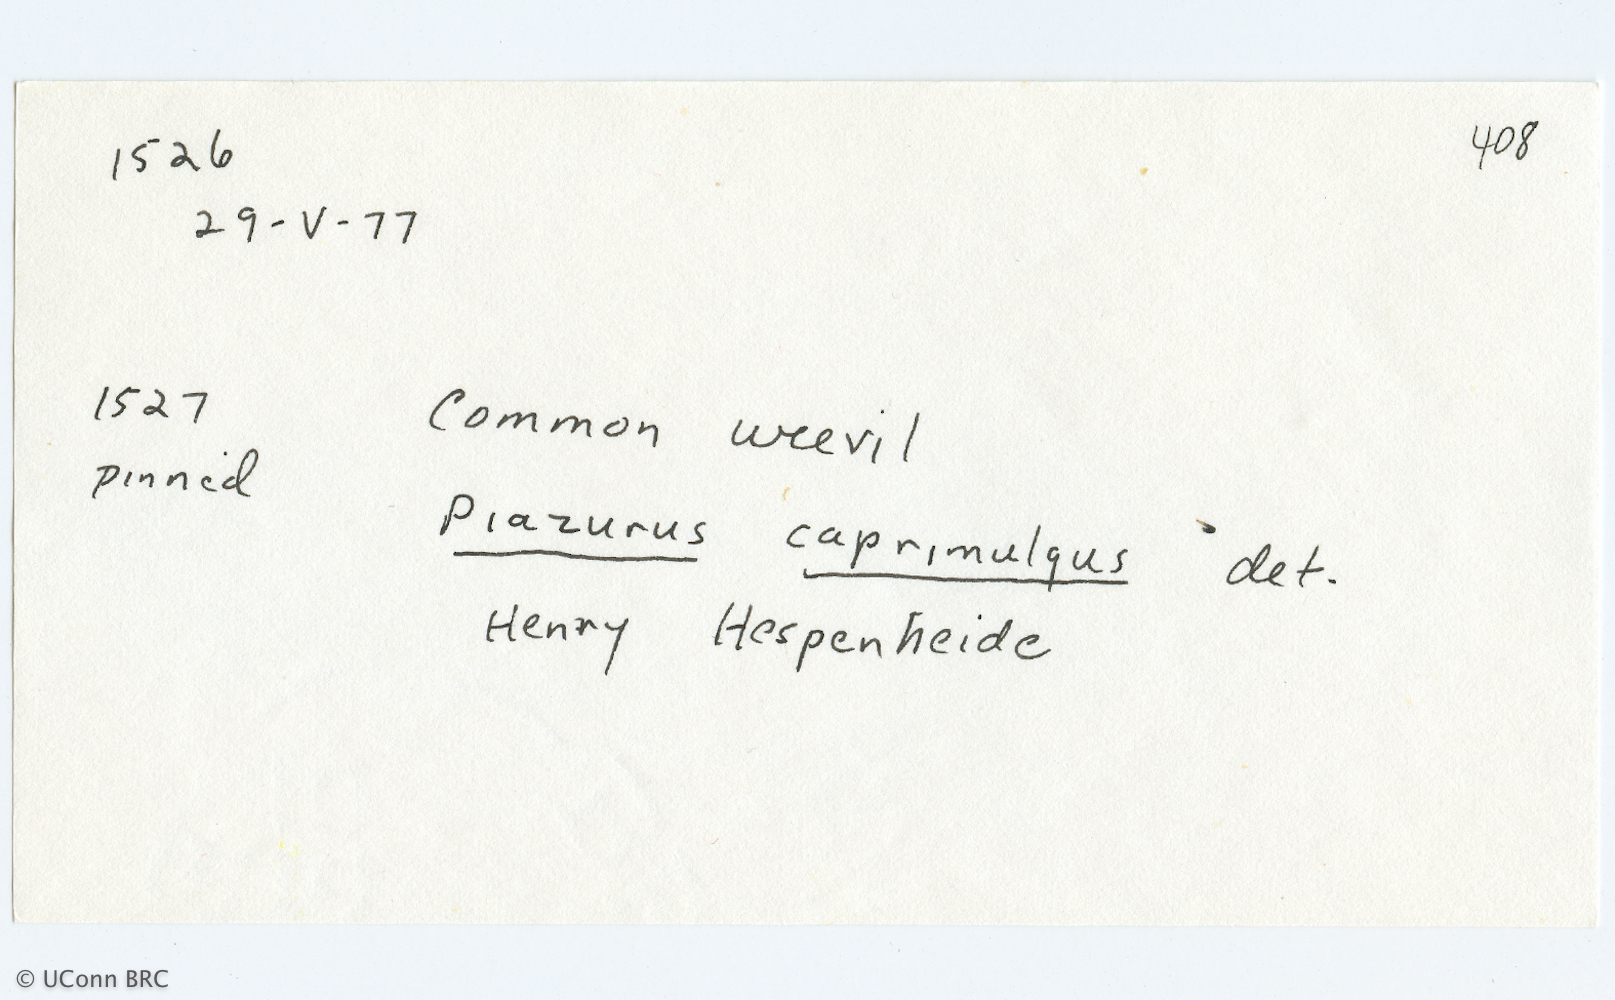 1526
408
29-V-77
1527
Common weevil
pinned
Piazurus caprimulgus det.
Henry Hespenheide
© UConn BRC